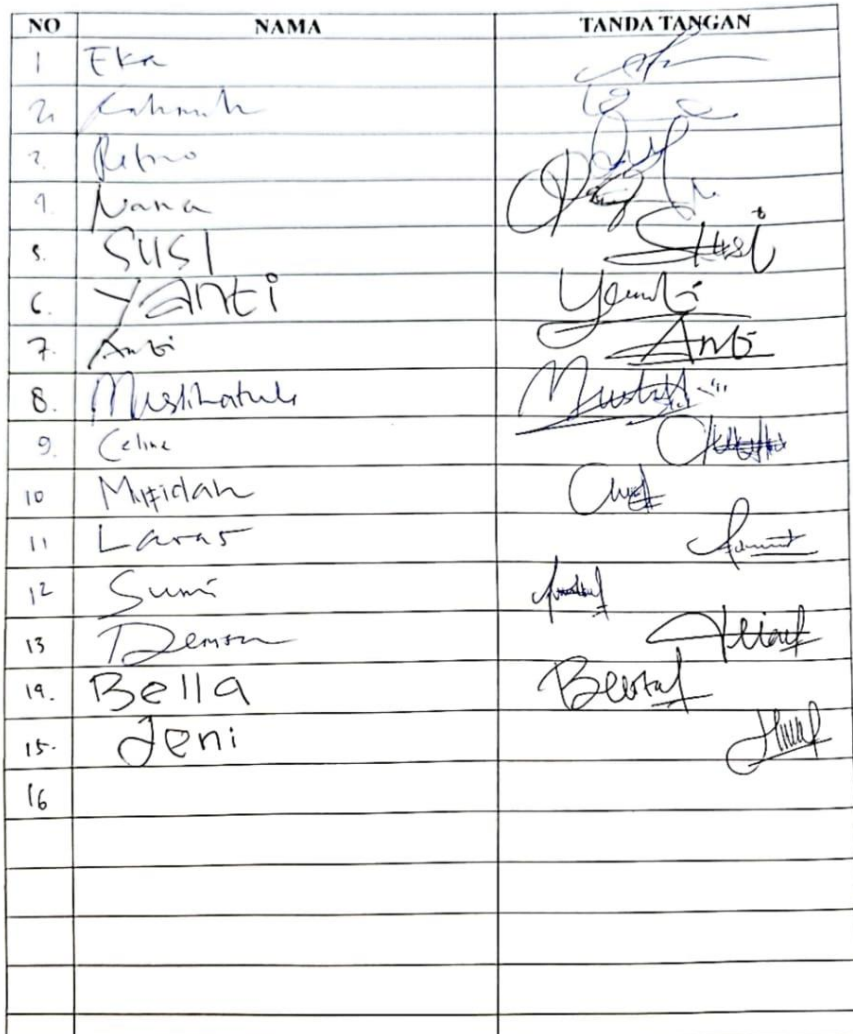 NO NAMA TANDA TANGAN
1 Eka
2. Rahmah
3. Retno
4. Nana
5. SUSI Susi
6. Yanti Yanti
7. Anti Anti
8. Muslihatul
9. Celine
10 Mufidah
11 Laras
12 Sumi
13
14. Bella
15. Jeni
16